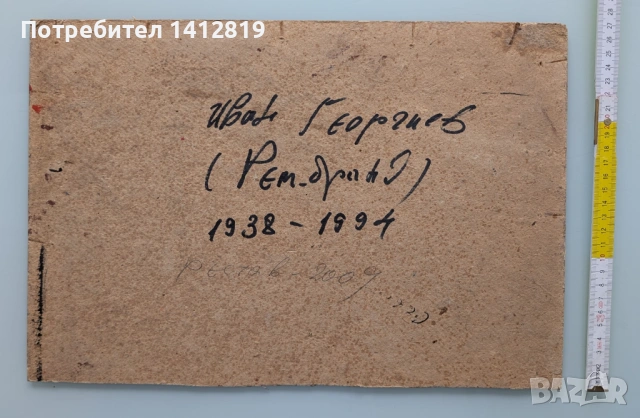 Потребител 1412819
Иван Георгиев
(Рембранд)
1938 - 1994
BAZAR